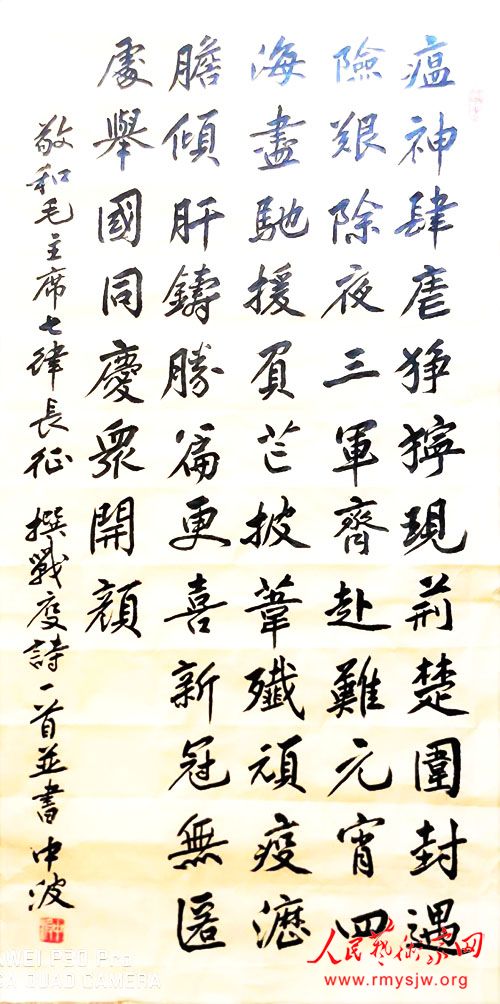 瘟神肆虐猙獰現荊楚圍封遇
險艱除夜三軍齊赴難元宵四
海盡馳援負芒披葦殲頑疫瀝
膽傾肝鑄勝篇更喜新冠無匿
處舉國同慶眾開顏
敬和毛主席七律長征 撰戰疫詩一首並書 中波
WEI P30 Pro
A QUAD CAMERA
人民藝術家网
www.rmysjw.org